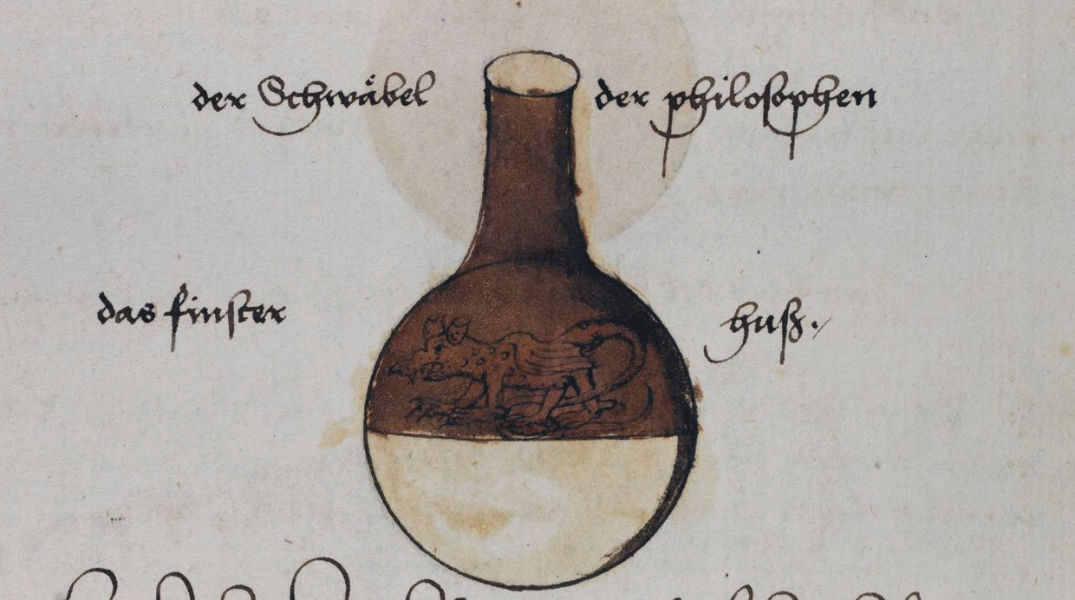 der Schwåbel der philosophen
das finster huß.